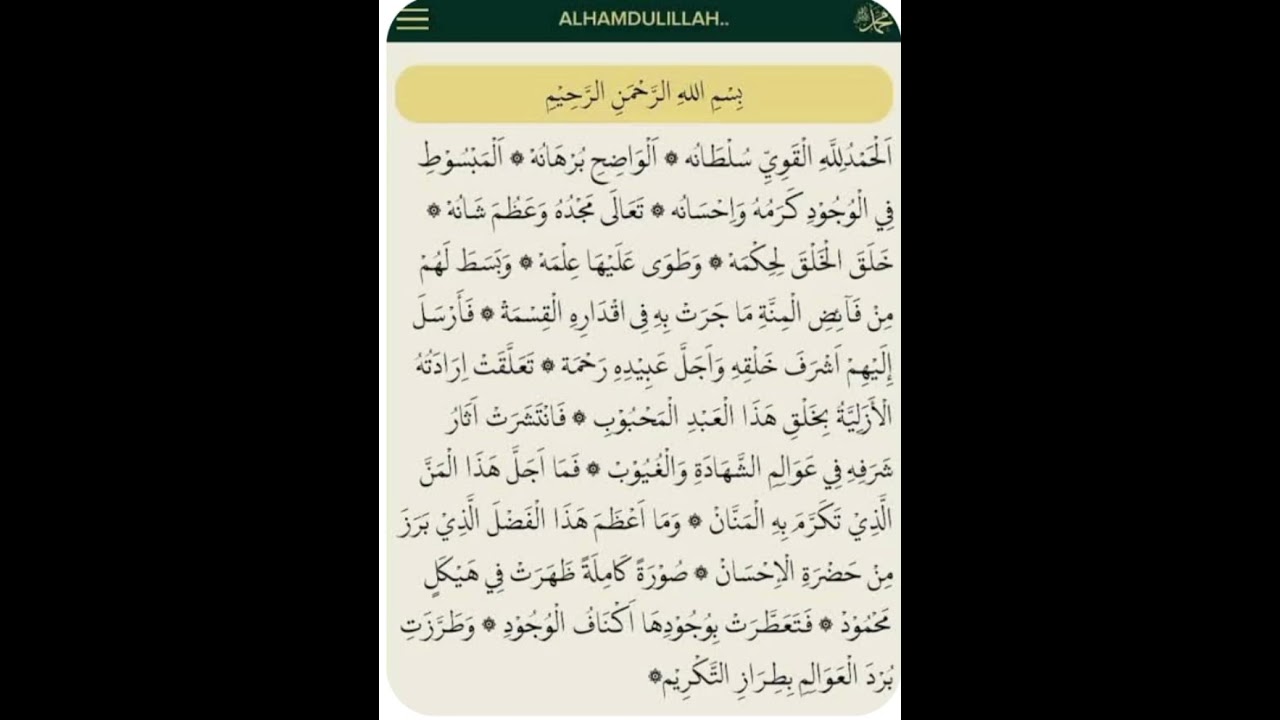 ALHAMDULILLAH..
محمد ﷺ
بِسْمِ اللهِ الرَّحْمَنِ الرَّحِيْمِ
اَلْحَمْدُلِلَّهِ الْقَوِيِّ سُلْطَانُه ۞ اَلْوَاضِحِ بُرْهَانُهْ ۞ اَلْمَبْسُوْطِ
فِي الْوُجُوْدِ كَرَمُهُ وَاِحْسَانُه ۞ تَعَالَى مَجْدُهُ وَعَظُمَ شَانُهْ ۞
خَلَقَ الْخَلْقَ لِحِكْمَهْ ۞ وَطَوَى عَلَيْهَا عِلْمَهْ ۞ وَبَسَطَ لَهُمْ
مِنْ فَآئِضِ الْمِنَّةِ مَا جَرَتْ بِهِ فِى اقْدَارِهِ الْقِسْمَةْ ۞ فَأَرْسَلَ
إِلَيْهِمْ اَشْرَفَ خَلْقِهِ وَاَجَلَّ عَبِيْدِهِ رَحْمَة ۞ تَعَلَّقَتْ اِرَادَتُهُ
الْأَزَلِيَّةُ بِخَلْقِ هَذَا الْعَبْدِ الْمَحْبُوْبِ ۞ فَانْتَشَرَتْ اَثَارُ
شَرَفِهِ فِي عَوَالِمِ الشَّهَادَةِ وَالْغُيُوْبْ ۞ فَمَا اَجَلَّ هَذَا الْمَنَّ
الَّذِيْ تَكَرَّمَ بِهِ الْمَنَّانْ ۞ وَمَا اَعْظَمَ هَذَا الْفَضْلَ الَّذِيْ بَرَزَ
مِنْ حَضْرَةِ الْاِحْسَانْ ۞ صُوْرَةً كَامِلَةً ظَهَرَتْ فِي هَيْكَلٍ
مَحْمُوْدْ ۞ فَتَعَطَّرَتْ بِوُجُوْدِهَا اَكْنَافُ الْوُجُوْدِ ۞ وَطَرَّزَتِ
بُرْدَ الْعَوَالِمِ بِطِرَازِ التَّكْرِيْم۞